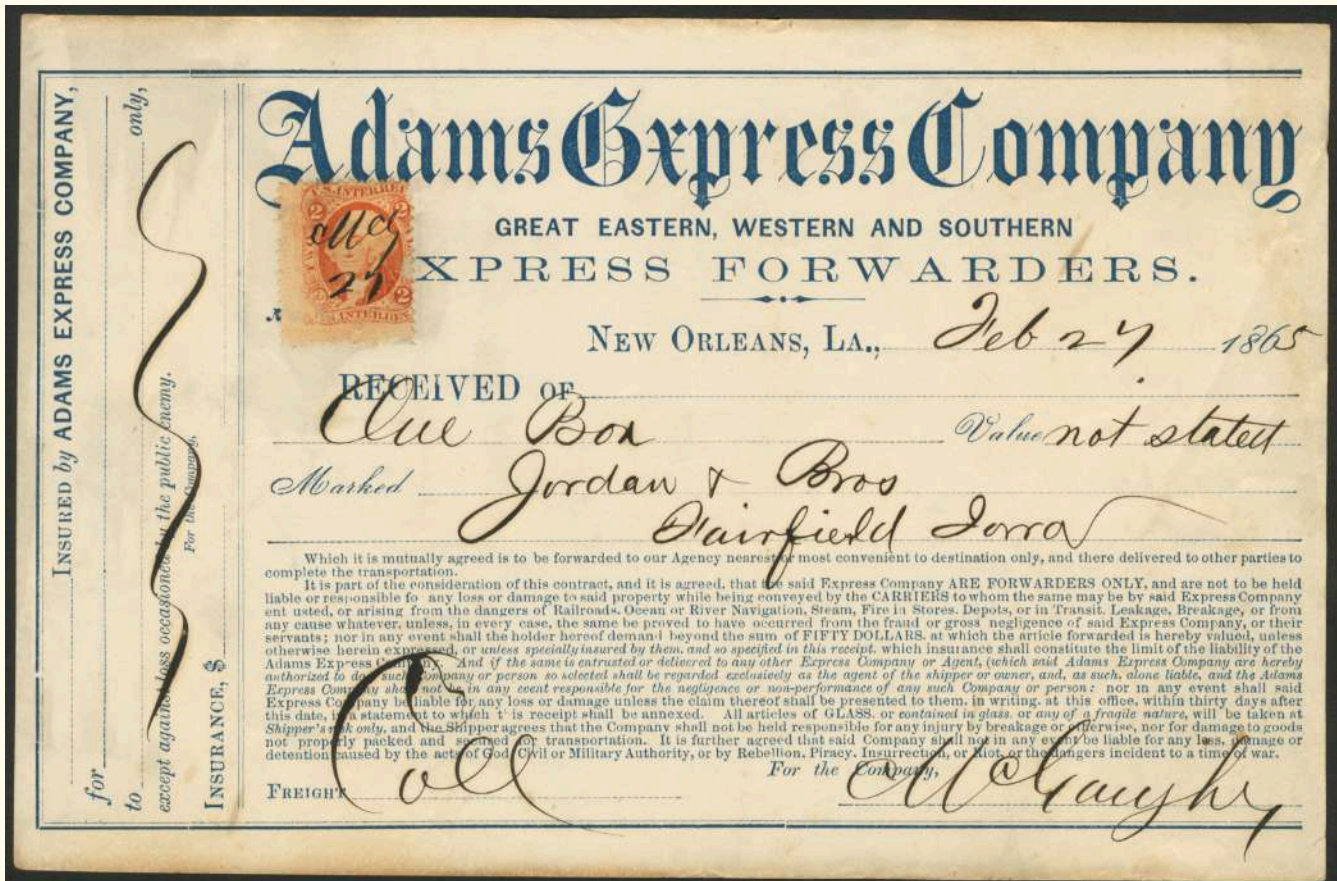 Adams Express Company
GREAT EASTERN, WESTERN AND SOUTHERN
XPRESS FORWARDERS.
U.S. INTER REV
2 2
Mcg
27
2 2
INTER REV
NEW ORLEANS, LA., Feb 27 1865
RECEIVED OF
One Box Value not stated
Marked Jordan & Bros
Fairfield Iowa
Which it is mutually agreed is to be forwarded to our Agency nearest or most convenient to destination only, and there delivered to other parties to
complete the transportation.
It is part of the consideration of this contract, and it is agreed, that the said Express Company ARE FORWARDERS ONLY, and are not to be held
liable or responsible fo any loss or damage to said property while being conveyed by the CARRIERS to whom the same may be by said Express Company
ent usted, or arising from the dangers of Railroads, Ocean or River Navigation, Steam, Fire in Stores, Depots, or in Transit, Leakage, Breakage, or from
any cause whatever, unless, in every case, the same be proved to have occurred from the fraud or gross negligence of said Express Company, or their
servants; nor in any event shall the holder hereof demand beyond the sum of FIFTY DOLLARS, at which the article forwarded is hereby valued, unless
otherwise herein expressed, or unless specially insured by them, and so specified in this receipt, which insurance shall constitute the limit of the liability of the
Adams Express Company. And if the same is entrusted or delivered to any other Express Company or Agent, (which said Adams Express Company are hereby
authorized to do,) such Company or person so selected shall be regarded exclusively as the agent of the shipper or owner, and, as such, alone liable, and the Adams
Express Company shall not be in any event responsible for the negligence or non-performance of any such Company or person; nor in any event shall said
Express Company be liable for any loss or damage unless the claim thereof shall be presented to them, in writing, at this office, within thirty days after
this date, in a statement to which t is receipt shall be annexed. All articles of GLASS, or contained in glass, or any of a fragile nature, will be taken at
Shipper's risk only, and the Shipper agrees that the Company shall not be held responsible for any injury by breakage or otherwise, nor for damage to goods
not properly packed and secured for transportation. It is further agreed that said Company shall not in any event be liable for any loss, damage or
detention caused by the acts of God, Civil or Military Authority, or by Rebellion, Piracy, Insurrection, or Riot, or the dangers incident to a time of war.
For the Company,
FREIGHT Coll McGaughey
INSURED by ADAMS EXPRESS COMPANY,
for only,
to
except against loss occasioned by the public enemy.
For the Company,
INSURANCE, $